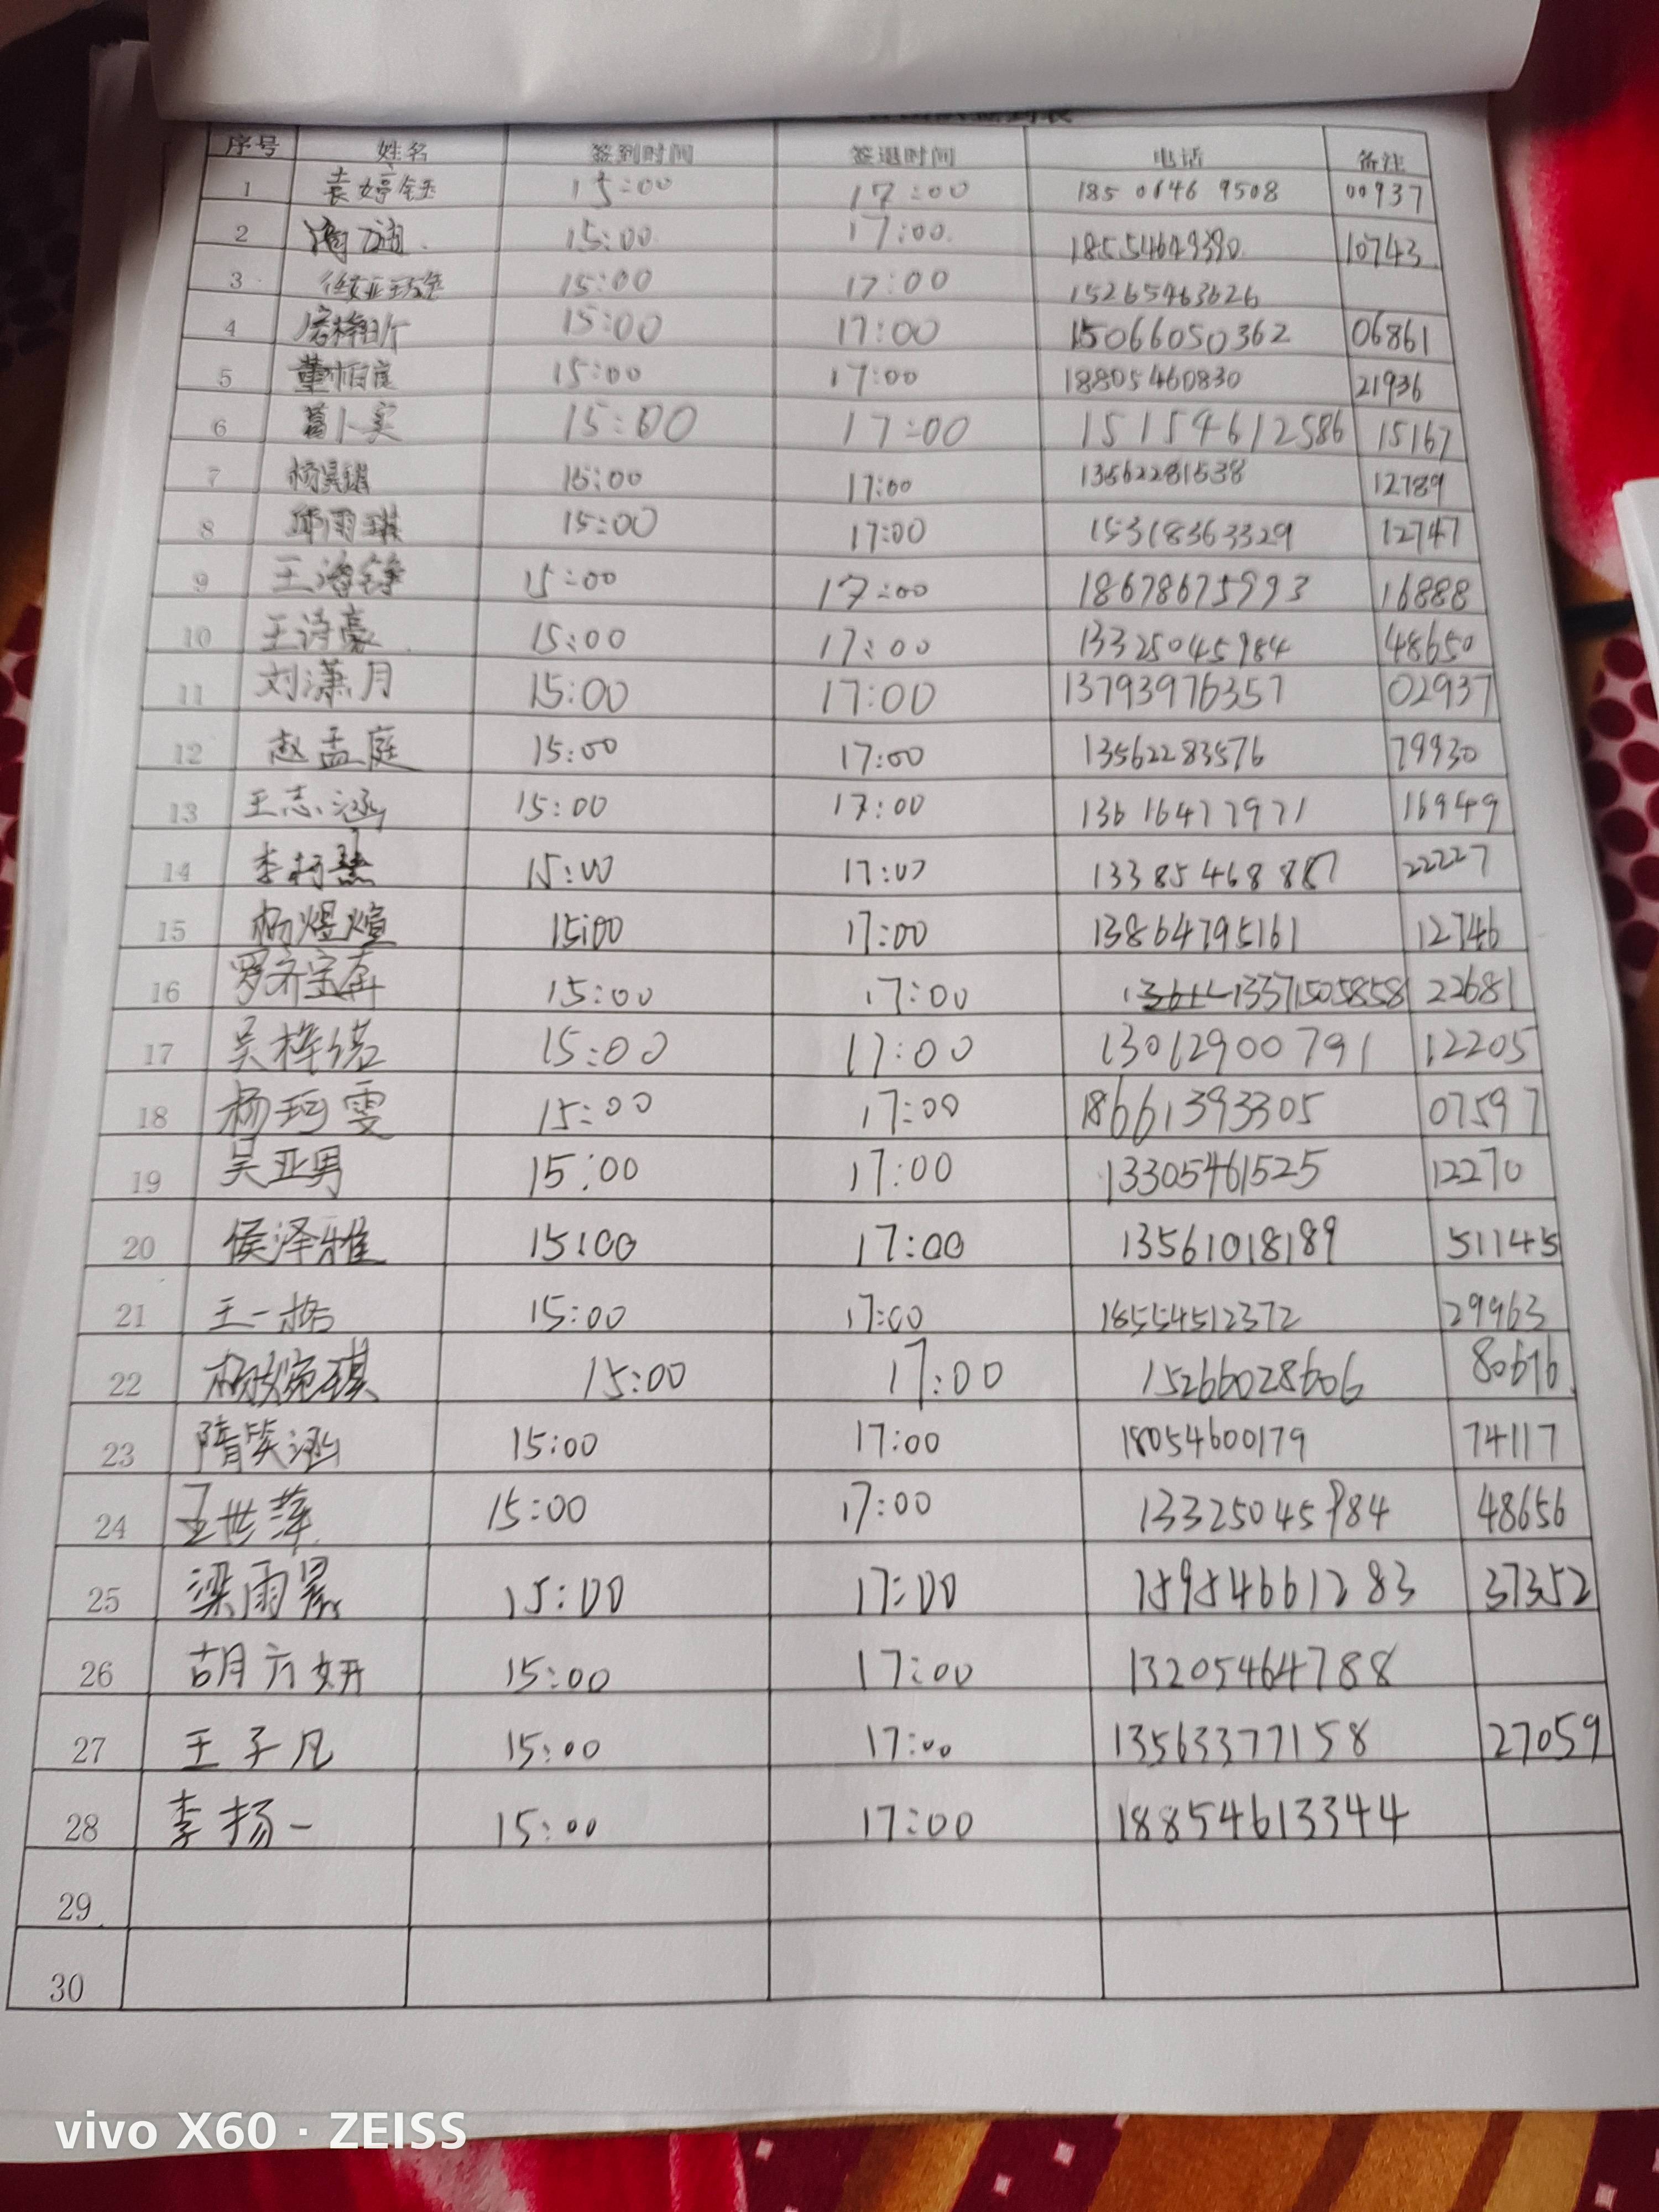 序号 姓名 签到时间 签退时间 电话 备注
1 袁婷钰 15:00 17:00 185 0646 9508 00937
2 15:00 17:00 18554649390 10743
3 15:00 17:00 15265463626
4 15:00 17:00 15066050362 06861
5 董栢良 15:00 17:00 18805460830 21936
6 葛卜实 15:00 17:00 151154612586 15167
7 杨昊 15:00 17:00 13562281538 12789
8 邱雨琪 15:00 17:00 15318363329 12747
9 王浴锋 15:00 17:00 18678675993 16888
10 王诗豪 15:00 17:00 13325045984 48650
11 刘潇月 15:00 17:00 13793976357 02937
12 赵孟庭 15:00 17:00 13562283576 79930
13 王志涵 15:00 17:00 136 16477971 16949
14 李柯 15:00 17:00 133 85 468 887 22227
15 杨煜煊 15:00 17:00 13864795161 12746
16 罗齐宝奔 15:00 17:00 13371505858 22681
17 吴梓偌 15:00 17:00 13012900791 12205
18 杨珂雯 15:00 17:00 18661393305 07597
19 吴亚男 15:00 17:00 13305461525 12270
20 侯泽雅 15:00 17:00 13561018189 51145
21 王一 15:00 17:00 18554512372 29963
22 杨婉琪 15:00 17:00 15266028606 80676
23 隋笑涵 15:00 17:00 18054600179 74117
24 王世萍 15:00 17:00 13325045984 48656
25 梁雨晨 15:00 17:00 18954661283 37352
26 胡方妍 15:00 17:00 13205464788
27 王子凡 15:00 17:00 13563377158 27059
28 李扬一 15:00 17:00 18854613344
29
30
vivo X60 · ZEISS